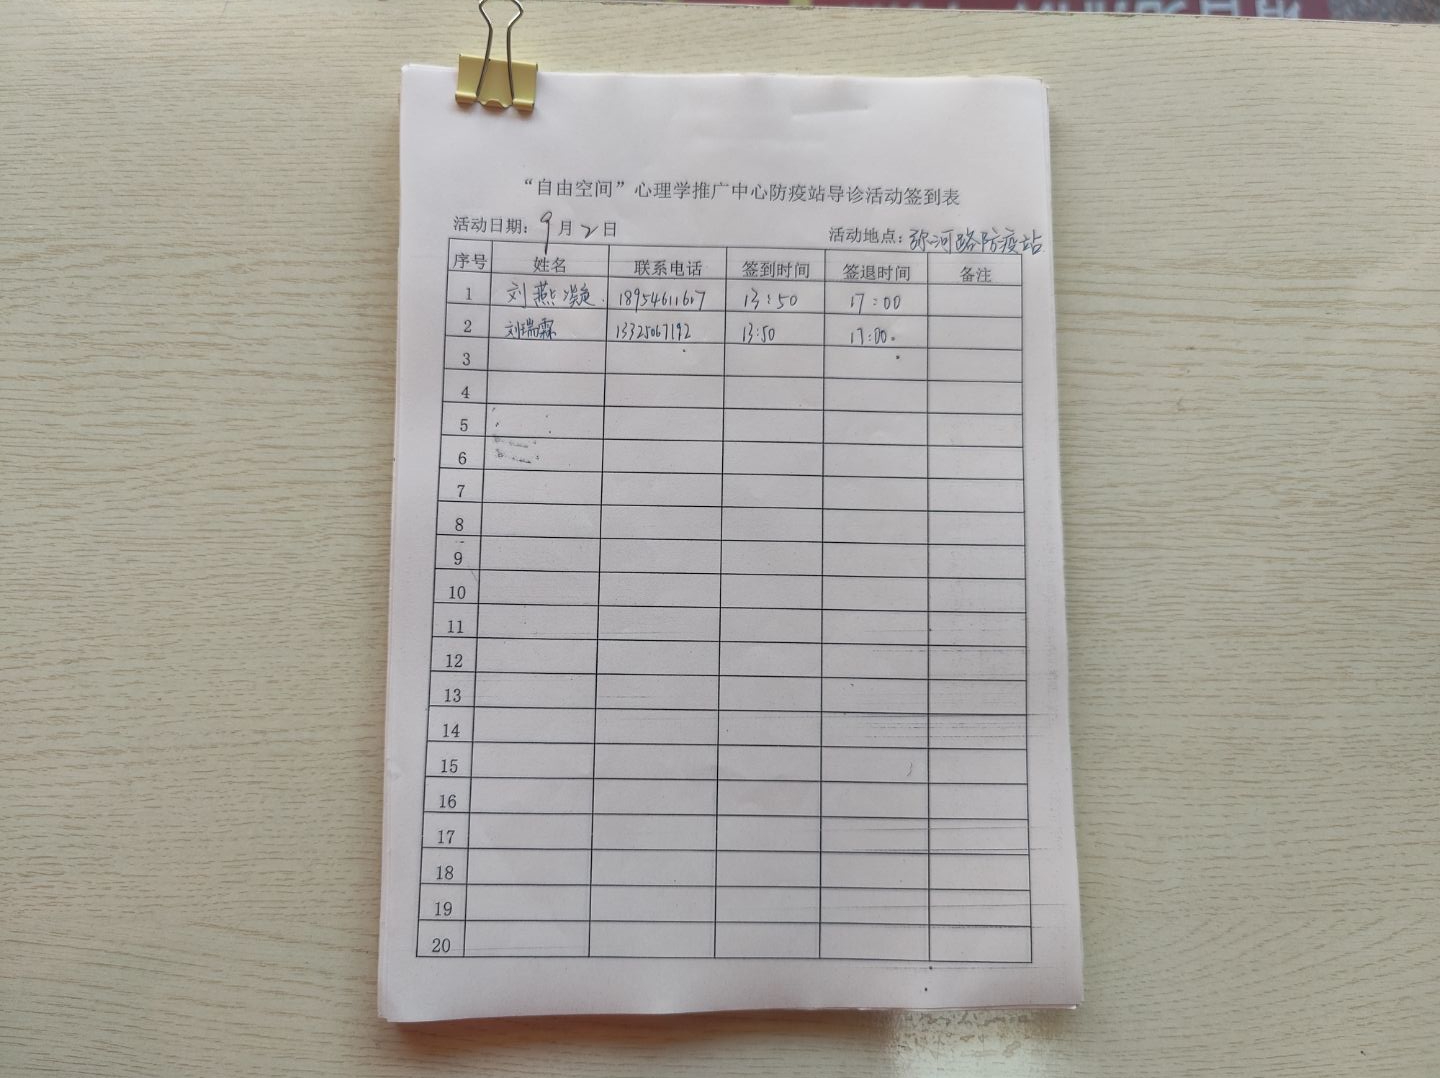 “自由空间”心理学推广中心防疫站导诊活动签到表
活动日期：9月2日 活动地点：弥河路防疫站
序号 姓名 联系电话 签到时间 签退时间 备注
1 刘燕 18954611617 13:50 17:00
2 刘瑞霖 13325067192 13:50 17:00
3
4
5
6
7
8
9
10
11
12
13
14
15
16
17
18
19
20